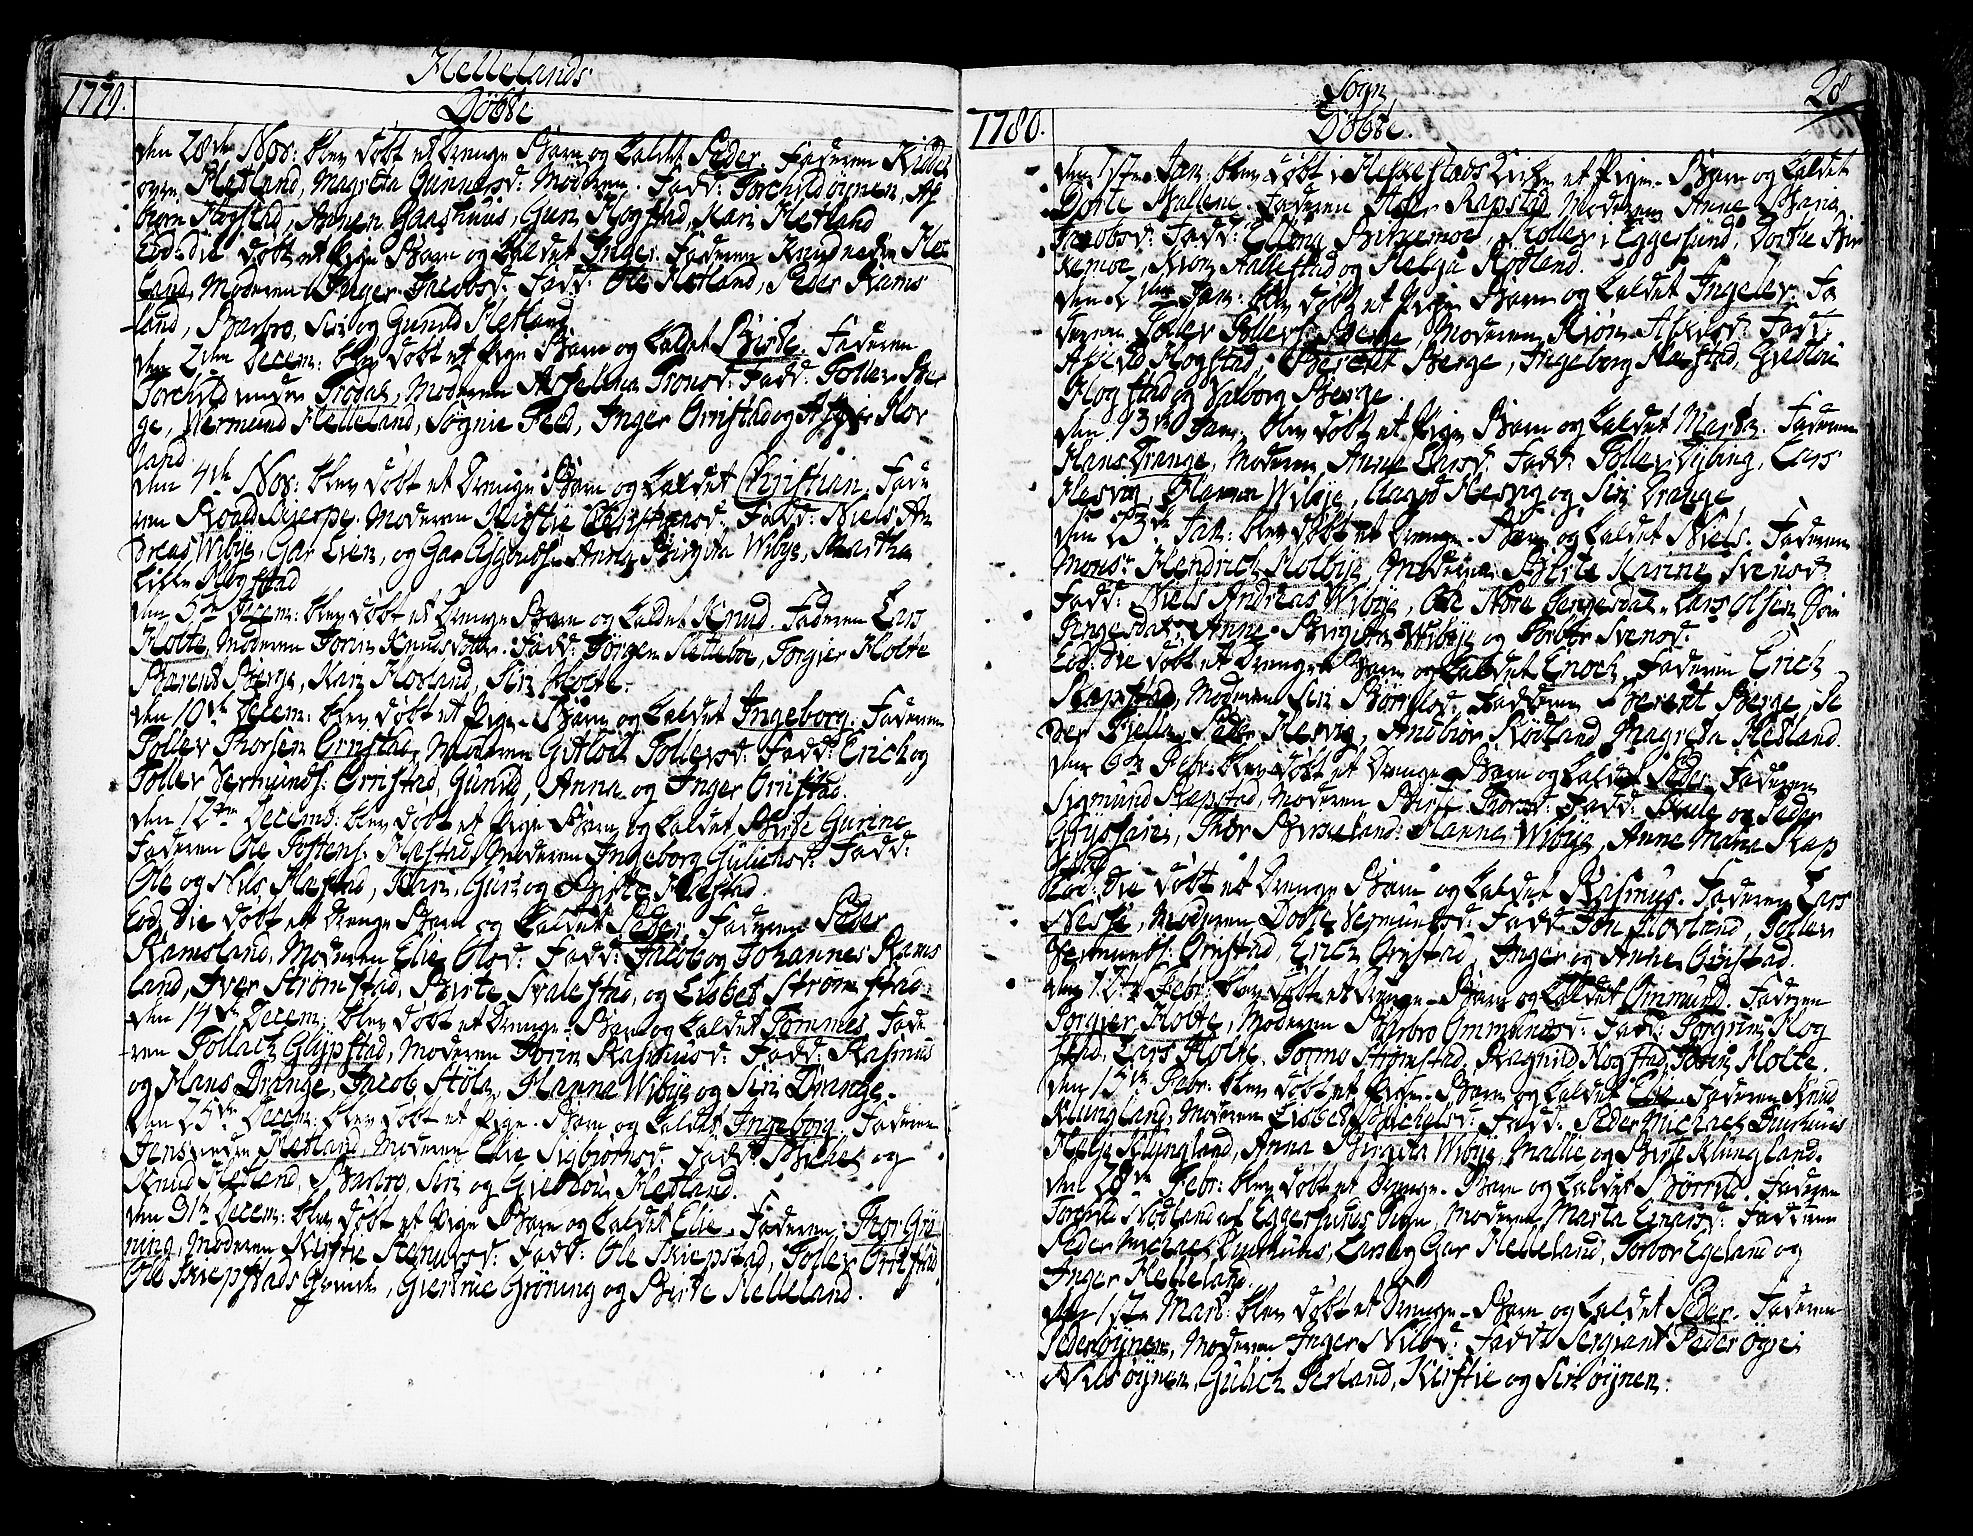 Hellelands
1779.
Döbte
den 28de Nov: blev döbt et Drenge Barn og kaldet Peder. Faderen
oven Hetland, Magreta Gunnersd: Moderen. Fadd: Torchild Øynen, As
biørn Hogstad, Annen Gaashuus, Guri Hogstad, Kari Hetland
Eod: die döbt et Pige Barn og kaldet Inger. Faderen Knud nedre Het
land, Moderen Inger Jacobsd: Fadd: Ole Hetland, Peder Rams
land, Barbro, Siri og Gunild Hetland
den 2den Decem: blev döbt et Pige Barn og kaldet Birte. Faderen
Torchild Trodal, Moderen Asselina Tronsd: Fadd: Tollev Ber
ge, Wermund Helleland, Søgnie Feed, Inger Ørrestad og Hov
land
den 4de Nov: blev döbt et Drenge Barn og kaldet Christian. Fade
ren Roald Skerpe. Moderen Kirstie Christensd: Fadd: Niels An
dreas Wibye, Gar Eien, og Gar Anna Birgita Wibye, Martha
Lisle Hogstad
den 5te Decem: blev döbt et Drenge Barn og kaldet Knud. Faderen Lars
Holte, Moderen Torin Knudsdotter. Fadd: Jörgen Slettebøe, Torgier Holte
Barent Berge, Kari Hovland, Siri Holte.
den 10de Decem: blev döbt et Pige Barn og kaldet Ingeborg. Faderen
Tollev Thorsen Ørrestad, Moderen Tollevsd: Fadd: Erich og
Tollev Vermunds: Orrestad, Gunild, Anna og Inger Orrestad.
den 12te Decemb: blev döbt et Pige Barn og kaldet Birte Gurine
Faderen Ole Tostens: Hæstad, Moderen Ingeborg Gulichsd: Fadd:
Ole og Nils Hæstad, Kari, Guri og Birte Hæstad.
Eod: Die döbt et Drenge Barn og kaldet Peder. Faderen Peder
Ramsland, Moderen Elie Olsd: Fadd: Jacob og Johannes Rams
land, Iver Strömstad, Birte Svalestad, og Lisbet Strömstad.
den 14de Decem: blev döbt et Drenge Barn og kaldet Tommes. Fade
ren Tollach Glypstad, Moderen Torin Rasmusd: Fadd: Rasmus
og Hans Drange, Jacob Stöle, Hanna Wibye og Siri Drange.
den 25de Decem: blev döbt et Pige Barn og kaldet Ingeborg. Faderen
Jens Hetland, Moderen Elie Sigbiörnsd: Fadd: Michel og
Knud Hetland, Barbro, Siri og Giertrue Hetland.
den 31te Decem: blev döbt et Pige Barn og kaldet Elie. Faderen Thor Grö
ning, Moderen Kirstie Fadd: Ole Skiepstad, Tollev Orrestad
Ole Skiepstads Qvinde, Giertrue Gröning og Birte Helleland.
Sogn
28
1780.
Döbte.
den 1ste Jan: blev döbt i Heskestads Kirke et Pige Barn og kaldet
Dorte Malene. Faderen Rapstad Moderen Anne Maria
Jacobsd: Fadd: Elling Birkemoe, Moller i Eggersund, Dortie Bir
kemoe, Aallestad og Helga Rödland.
den 2den Jan: blev döbt et Pige Barn og kaldet Ingelev. Fa
deren Tollev Tollevs: Berge, Moderen Fadd:
Hogstad, Berent Berge, Ingeborg Hæstad, Giertrue
Hogstad og Valborg Berge.
den 13de Jan: blev döbt et Pige Barn og kaldet Marte. Faderen
Hans Drange, Moderen Anna Larsd: Fadd: Tollev Tyking, Lars
Hesvig, Hanna Wibye, Aagod Hesvig og Siri Drange
den 23de Jan: blev döbt et Drenge Barn og kaldet Niels. Faderen
Monsr Hendrich Holbye, Moderen Birte Karine Svensd
Fadd: Niels Andreas Wibye, Ole Store Tengesdal, Lars Olsen
Tengesdal, Anne Birgita Wibye og Torbor Svensd:
Eod: Die döbt et Drenge Barn og kaldet Enoch. Faderen Erich
Rapstad, Moderen Siri Fadderne Berent Berge, Pe
der Eielle, Peder Hesvig, Annbior Rödland, Magreta Hetland.
den 6te Febr: blev döbt et Drenge Barn og kaldet Peder. Faderen
Sigmund Skepstad, Moderen Birte Thorsd: Fadd: og Peder
Thor Birkeland, Hanna Wibye, Anne Maria Rap
stad
Eod: die döbt et Drenge Barn og kaldet Rasmus. Faderen Lars
Nesse, Moderen Dorte Vermundsd: Fadd: Jon Hovland, Tollev
Vermunds: Orrestad, Erich Orrestad, Inger og Anne Orrestad.
den 12te Febr: blev döbt et Drenge Barn og kaldet Ommund. Faderen
Torgier Holte, Moderen Barbro Ommundsd: Fadd: Torgrim Hog
stad, Lars Holte, Tormo Strömstad, Ragnild Hogstad, Torin Holte.
den 15de Febr: blev döbt et Pige Barn og kaldet Elie. Faderen Knud
Klungland, Moderen Lisbet Michelsd: Fadd: Peder Michael Duehuus
Helje Klungland, Anna Birgita Wibye, Mallie og Birte Klungland.
den 28de Febr: blev döbt et Drenge Barn og kaldet Börrild. Faderen
Torkil Nödland af Eggersunds Sogn, Moderen Marta Einersd: Fadderne
Peder Michael Duehuus, Lars og Gar Helleland, Torbor Egeland og
Inger Helleland.
den 1ste Mart: blev döbt et Drenge Barn og kaldet Peder. Faderen
Peder Øynen, Moderen Inger Nilsd: Fadd: Sergiant Peder Ögrei
Nils Øynen, Gulich Birland, Kirstie og Siri Øynen.